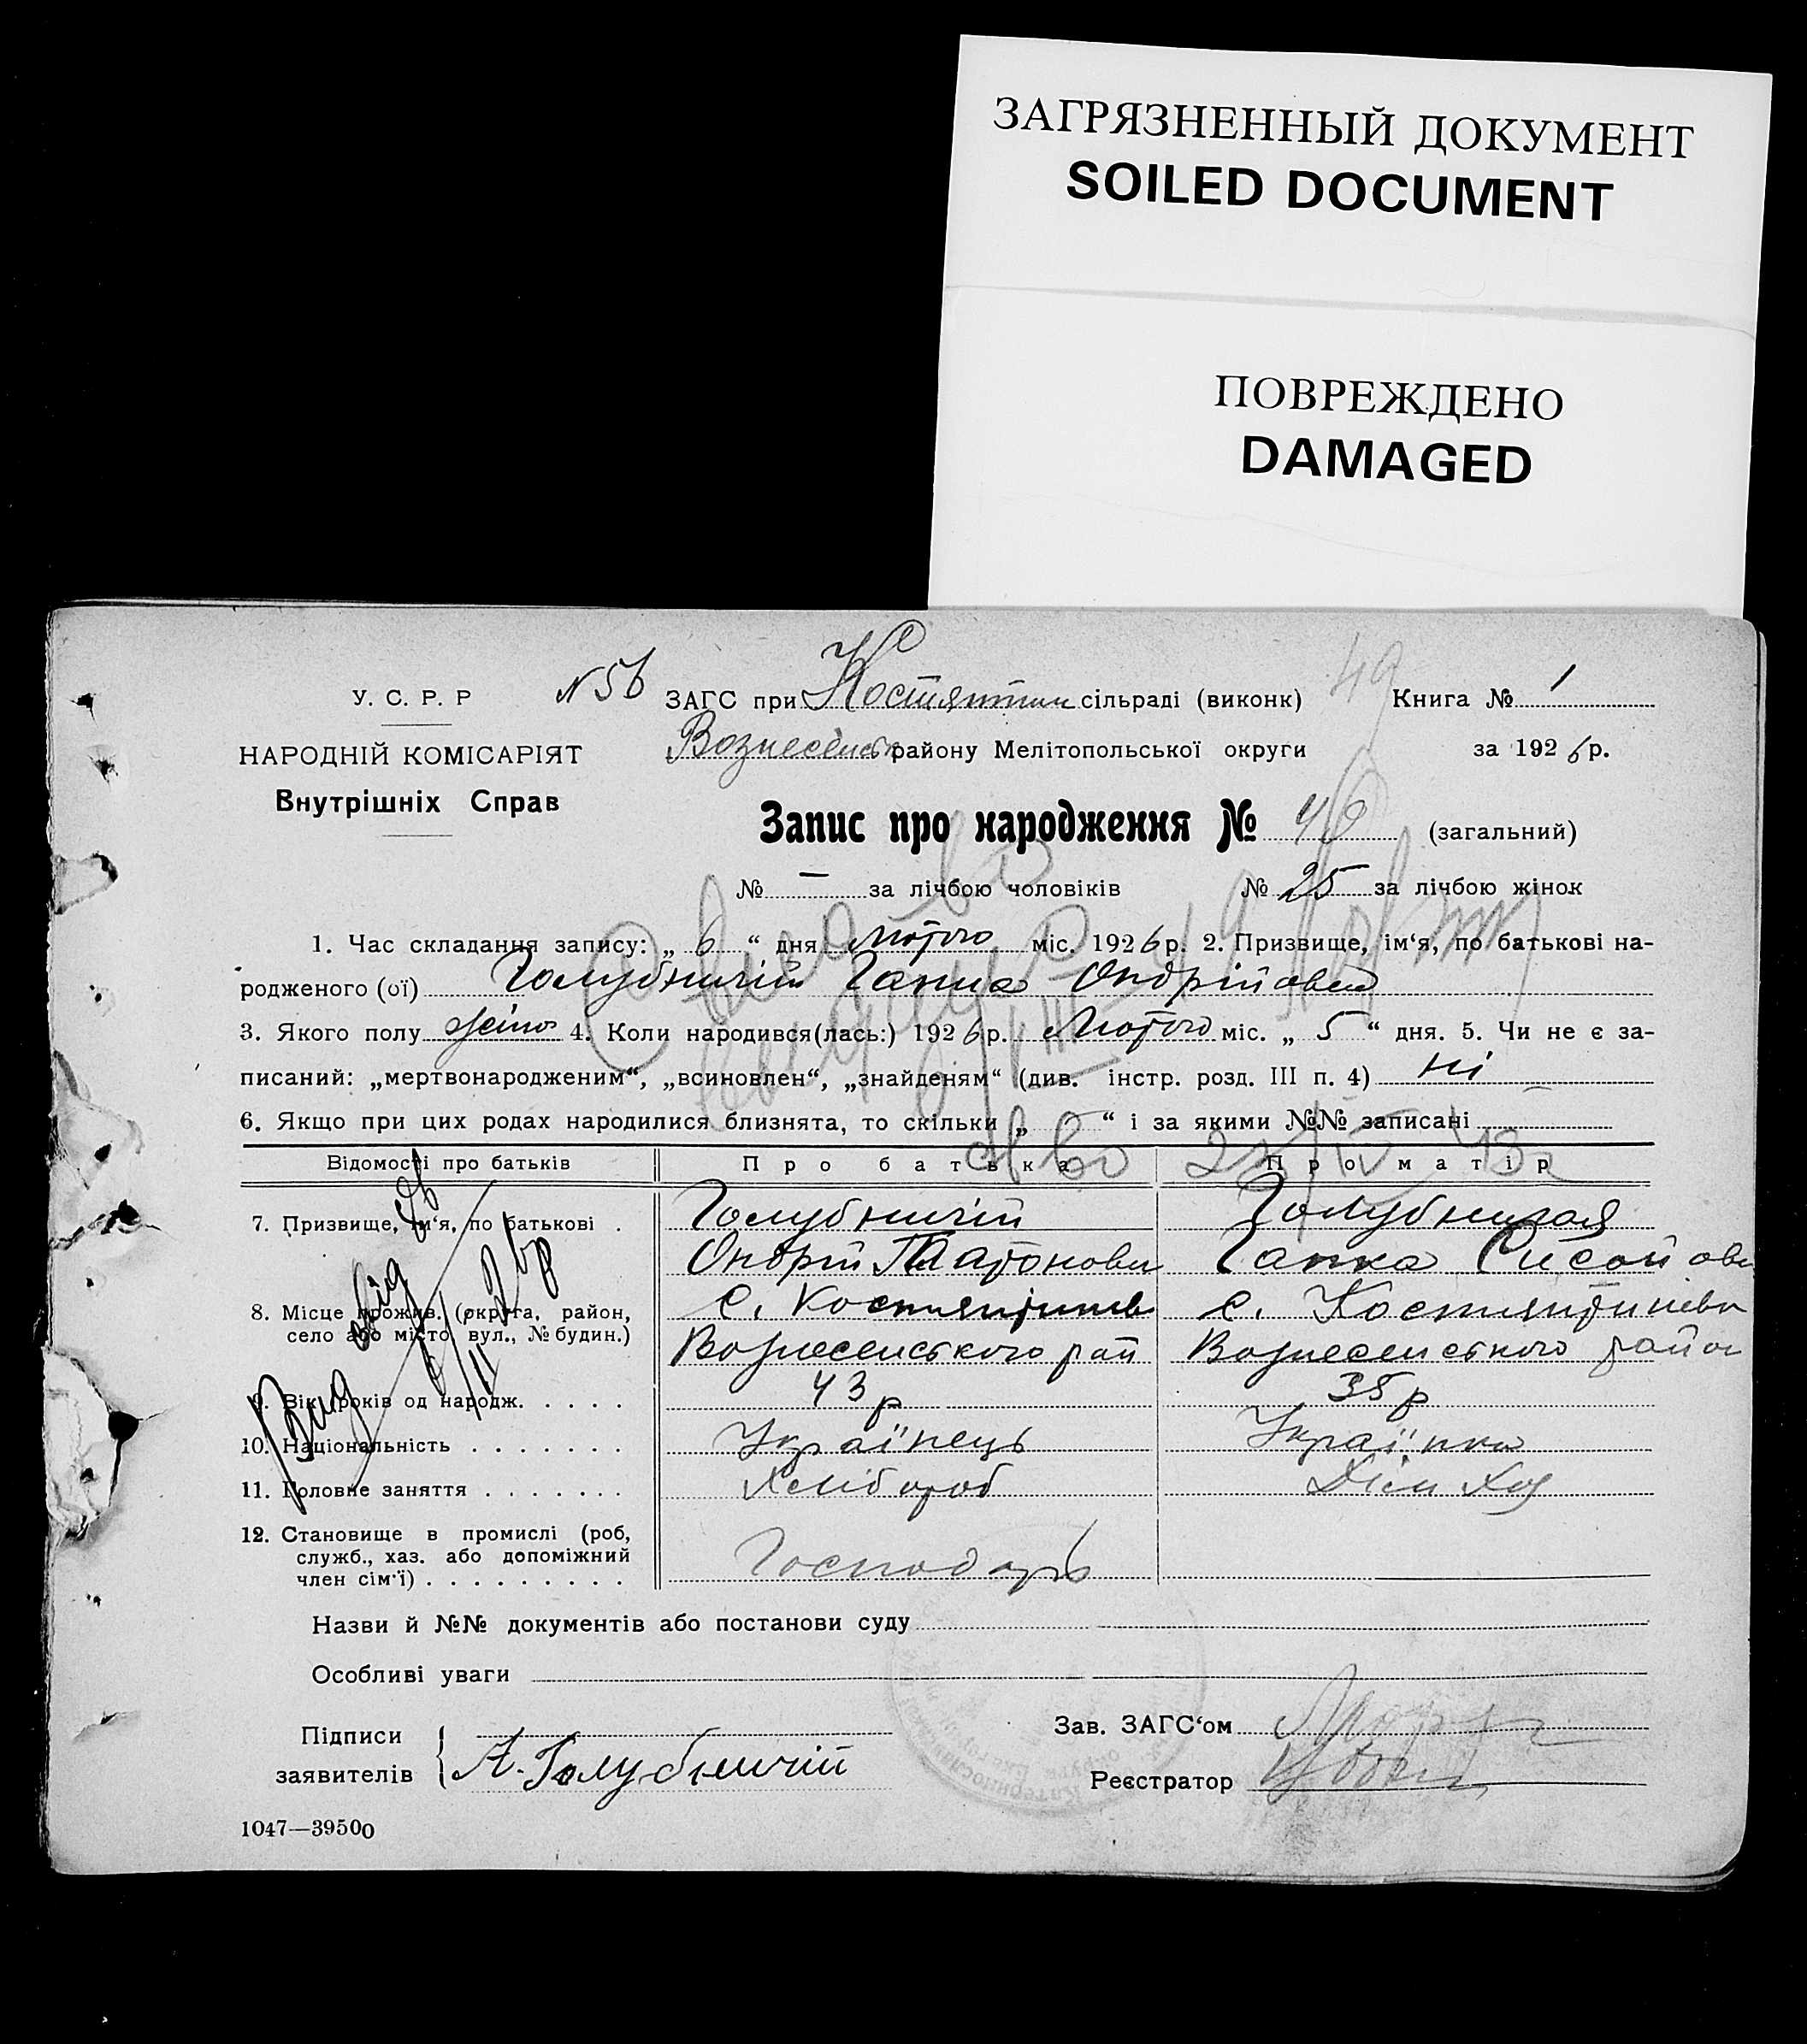 ЗАГРЯЗНЕННЫЙ ДОКУМЕНТ
SOILED DOCUMENT
ПОВРЕЖДЕНО
DAMAGED
У. С. Р. Р
НАРОДНІЙ КОМІСАРІЯТ
Внутрішніх Справ
N 56 ЗАГС при Костянтин сільраді (виконк) 49 Книга № 1
Вознесенськ району Мелітопольської округи за 1926 р.
Запис про народження № 46 (загальний)
№ — за лічбою чоловіків № 25 за лічбою жінок
1. Час складання запису: „ 6 “ дня Лютого міс. 1926 р. 2. Призвище, ім‘я, по батькові на-
родженого (ої) Голубничій Ганна
3. Якого полу жіно 4. Коли народився(лась:) 1926 р. Лютого міс. „ 5 “ дня. 5. Чи не є за-
писаний: „мертвонародженим“, „всиновлен“, „знайденям“ (див. інстр. розд. III п. 4) ні
6. Якщо при цих родах народилися близнята, то скільки „ — “ і за якими №№ записані —
Відомості про батьків Про батька Про матір
7. Призвище, ім‘я, по батькові . Голубничій Голубничая
Ондрій Ганна
8. Місце прожив. (округа, район,
село або місто, вул., № будин.)
с. с.
Вознесенського рай Вознесенського район
9. Вік (років од народж. . . . . 43 р 35 р
10. Національність . . . . . . . Українець Українка
11. Головне заняття . . . . . . . Хлібороб Дом Хоз
12. Становище в промислі (роб,
служб., хаз. або допоміжний
член сім‘ї) . . . . . . . . . Господарь
Назви й №№ документів або постанови суду
Особливі уваги
Підписи
заявителів А. Голубничий
Зав. ЗАГС‘ом
Реєстратор
1047—39500